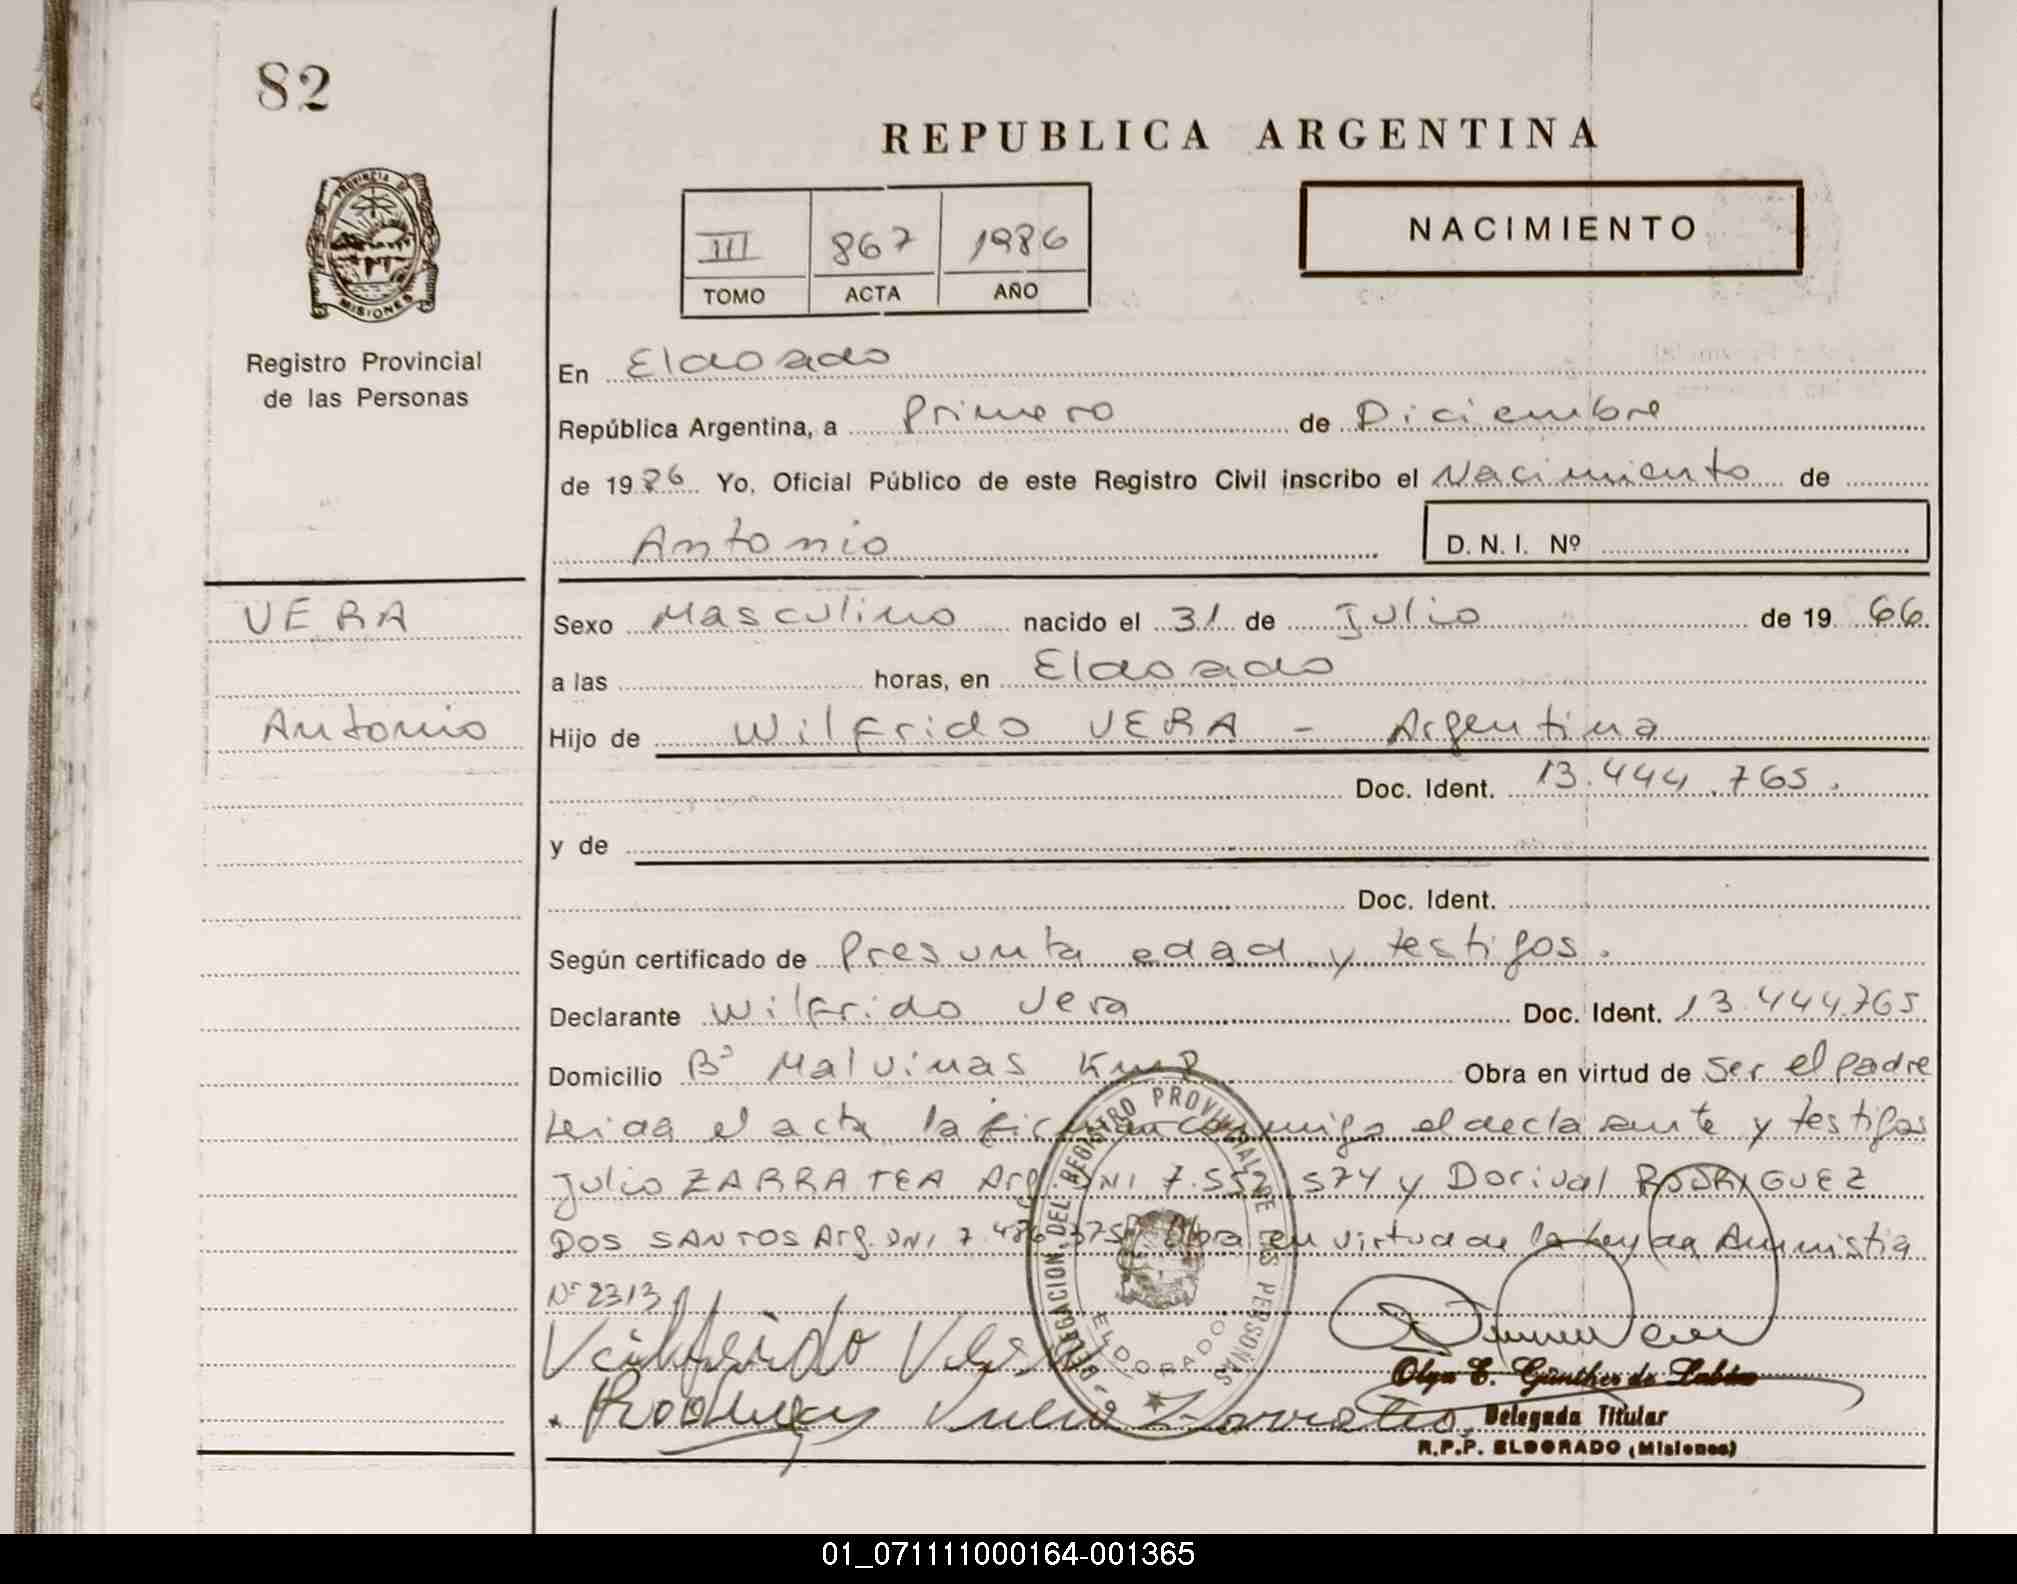 82
REPUBLICA ARGENTINA
PROVINCIA DE
MISIONES
III 867 1986
TOMO ACTA AÑO
NACIMIENTO
Registro Provincial
de las Personas
En Eldorado
República Argentina, a Primero de Diciembre
de 1986 Yo, Oficial Público de este Registro Civil inscribo el Nacimiento de
Antonio D. N. I. Nº
VERA
Antonio
Sexo Masculino nacido el 31 de Julio de 19 66
a las horas, en Eldorado
Hijo de Wilfrido VERA - Argentina
Doc. Ident. 13.444.765.
y de
Doc. Ident.
Según certificado de Presunta edad y testigos.
Declarante Wilfrido Vera Doc. Ident. 13.444.765
Domicilio Bº Malvinas Km Obra en virtud de ser el padre
Leida el acta la firman conmigo el declarante y testigos
Julio ZARRATEA Arg. DNI 7.552.574 y Dorival RODRIGUEZ
DOS SANTOS Arg. DNI 7.486.375 Obra en virtud de la Ley de Amnistia
Nº 2313
DELEGACION DEL REGISTRO PROVINCIAL DE LAS PERSONAS
ELDORADO
Olga E. Günther de
Delegada Titular
R.P.P. ELDORADO (Misiones)
01_071111000164-001365